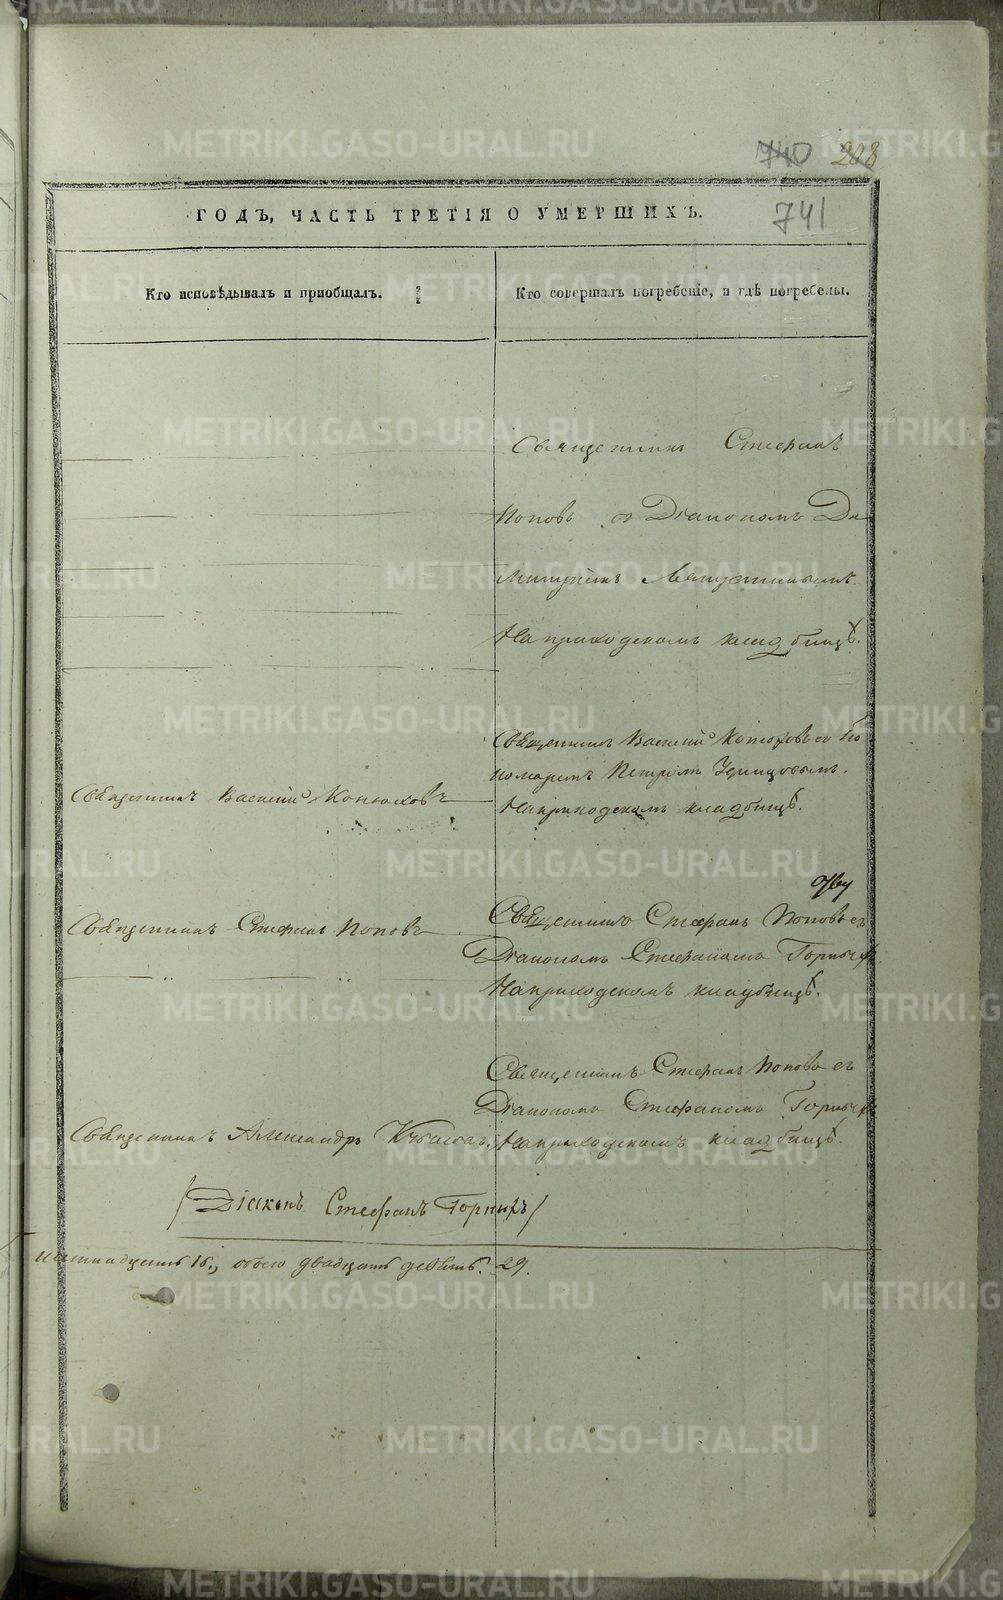 740 208
ГОДЪ, ЧАСТЬ ТРЕТІЯ О УМЕРШИХЪ.
741
Кто исповѣдывалъ и пріобщалъ.
Кто совершалъ погребеніе, и гдѣ погребены.
Священникъ Стефанъ
Поповъ съ Діакономъ Ди
митріемъ
На приходскомъ кладбищѣ.
Священникъ Василій Конюховъ
Священникъ Василій Конюховъ съ По
номаремъ Петромъ Удинцовымъ.
На приходскомъ кладбищѣ.
Священникъ Стефанъ Поповъ
Священникъ Стефанъ Поповъ съ
Діакономъ Стефаномъ Горныхъ
На приходскомъ кладбищѣ.
Священникъ Стефанъ Поповъ съ
Діакономъ Стефаномъ Горныхъ
Священникъ Александръ
На приходскомъ кладбищѣ.
/Діаконъ Стефанъ Горныхъ/
обоего двадцать девять. 29.
METRIKI.GASO-URAL.RU